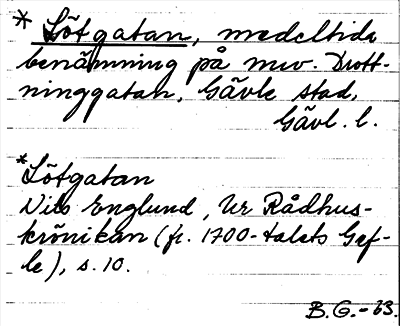 * Lötgatan, medeltida
benämning på nuv. Drott-
ninggatan, Gävle stad,
Gävl. l.
*Lötgatan
Nils Englund, Ur Rådhus-
krönikan (fr. 1700-talets Gef-
le), s. 10.
B.G.-63.